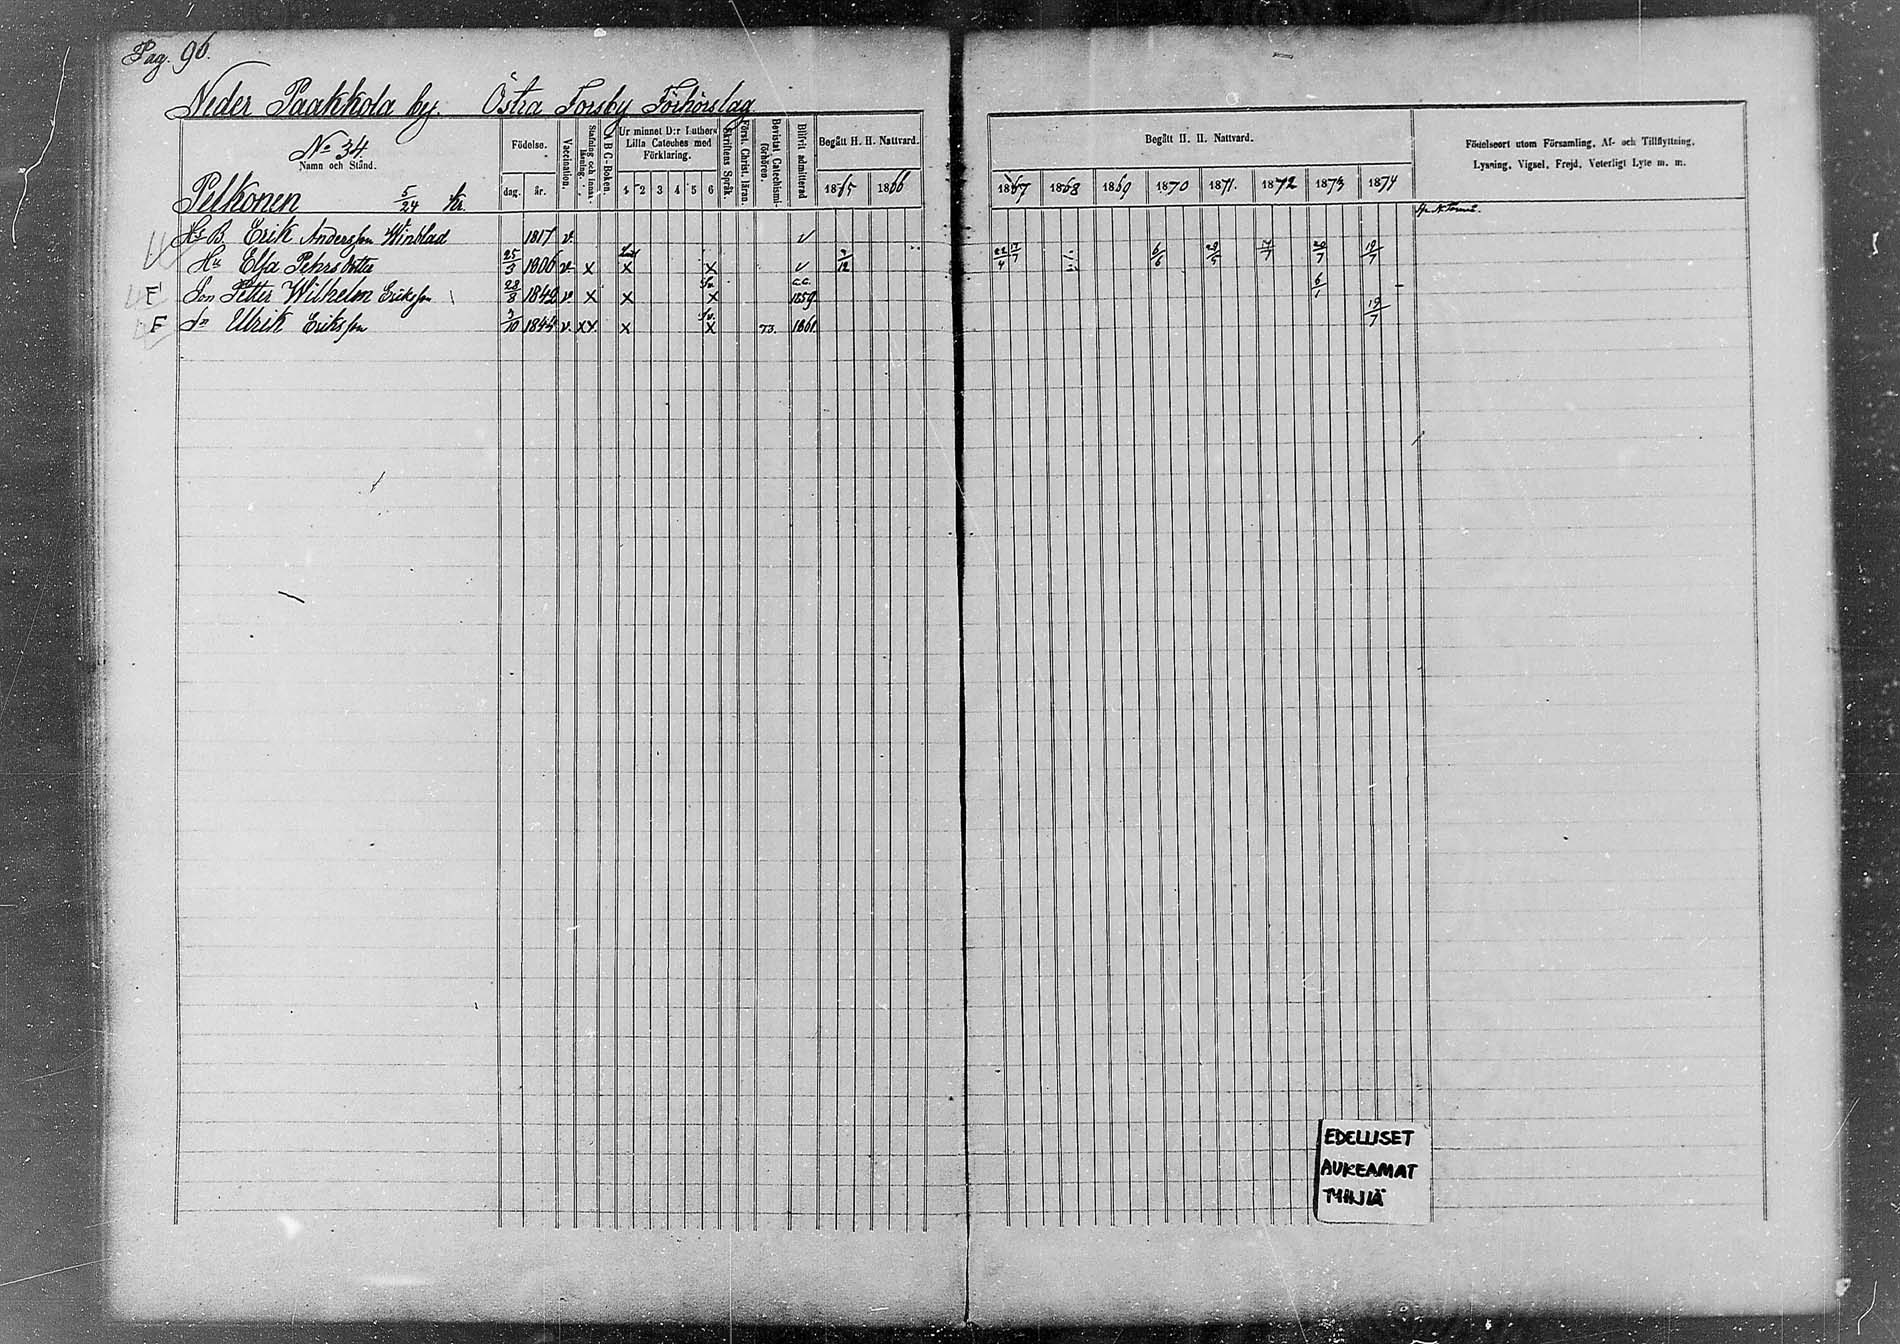 Pag. 96.
Neder Paakkola by. Östra Forsby Förhörslag
No 34.
Namn och Stånd.
Födelse.
dag. år.
Vaccination.
Stafning och innan-läsning.
A B C-Boken.
Ur minnet D:r Luthers Lilla Cateches med Förklaring.
1 2 3 4 5 6
Skriftens Språk.
Först. Christ. läran.
Bevistat Catechismi-förhören.
Blifvit admitterad
Begått H. H. Nattvard.
1865 1866
Pelkonen 5/24 Kr.
Hs B. Erik Andersson Winblad 1817 v. v
Hu Elsa Pehrs dotter 25/3 1806 v x x x v 3/12
F Son Petter Wilhelm Eriksson 28/8 1842 v x x x c.c. 1859
F Sn Ulrik Eriksson 3/10 1844 v. xx x x 73. 1861.
Begått H. H. Nattvard.
1867 1868 1869 1870 1871. 1872 1873 1874
Födelseort utom Församling, Af- och Tillflyttning,
Lysning, Vigsel, Frejd, Veterligt Lyte m. m.
22/4 17/7 6/6 29/5 7/7 20/7 19/7
6/1
19/7
EDELLISET
AUKEAMAT
TYHJIÄ